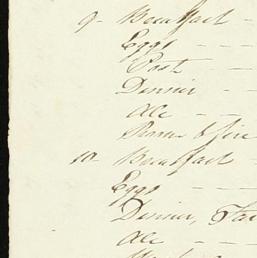 9 - Breakfast -
Eggs - - -
Post - -
Dinner - -
Ale - - -
& fire
10 - Breakfast -
Eggs - - -
Dinner,
Ale - -